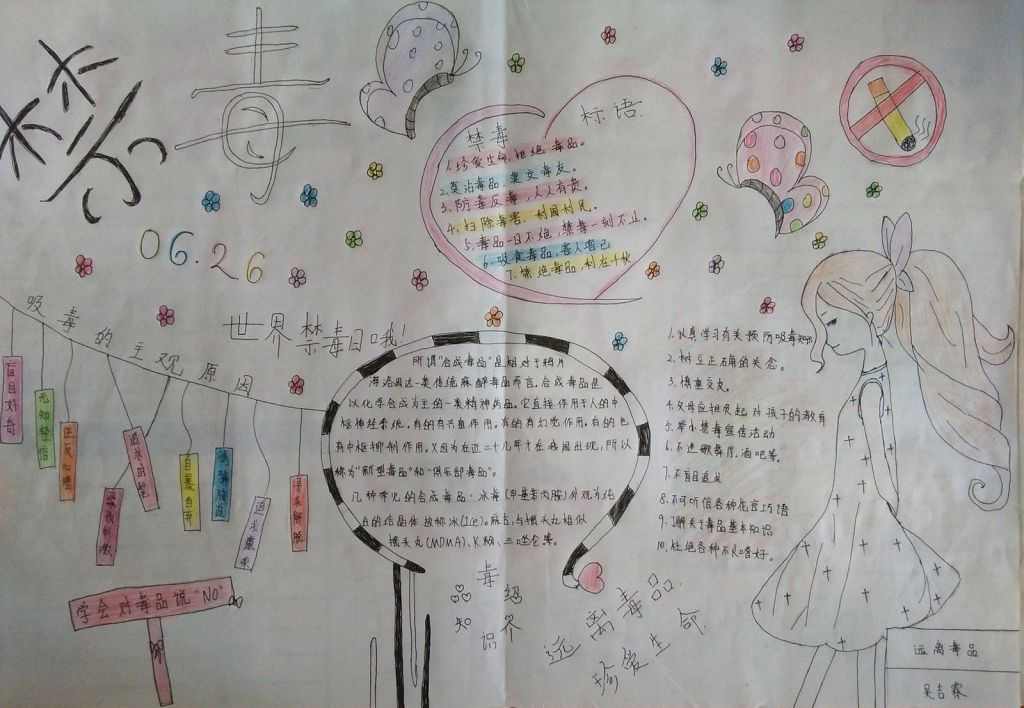 禁毒
06.26
世界禁毒日哦!
禁毒
标语
1、珍爱生命,拒绝毒品。
2、莫沾毒品,莫交毒友。
3、防毒反毒,人人有责。
4、扫除毒害,利国利民。
5、毒品一日不绝,禁毒一刻不止。
6、吸食毒品,害人害己
7、禁绝毒品,利在千秋
吸毒的主观原因
盲目好奇
无知轻信
逆反心理
追求时髦
自暴自弃
寻求解脱
学会对毒品说"NO"
所谓"合成毒品"是相对于鸦片
海洛因这一类传统麻醉毒品而言。合成毒品是
以化学合成为主的一类精神药品。它直接作用于人的中
枢神经系统,有的有兴奋作用,有的有幻觉作用,有的也
有中枢抑制作用。又因为在近二十几年才在我国出现,所以
称为"新型毒品"和"俱乐部毒品"。
几种常见的合成毒品:冰毒(甲基苯丙胺)外观为纯
白的结晶体故称冰(Ice)。麻古,与摇头丸相似
摇头丸(MDMA)、K粉、三唑仑等。
毒品知识介绍
远离毒品
珍爱生命
1、认真学习有关预防吸毒知识
2、树立正确的关念。
3、慎重交友。
4、父母应担负起对孩子的教育
5、举小禁毒宣传活动
6、不进歌舞厅,酒吧等。
7、不盲目追求
8、不可听信各种花言巧语
9、了解关于毒品基本知识
10、杜绝各种不良嗜好。
远离毒品
吴吉霖